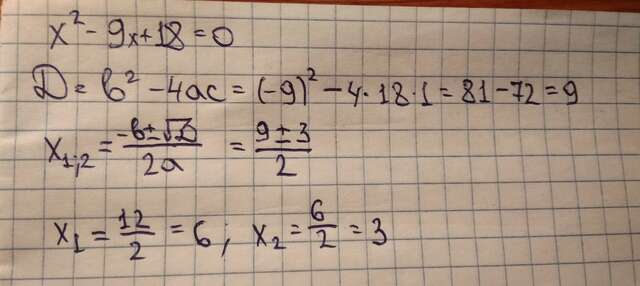 x² - 9x + 18 = 0
D = b² - 4ac = (-9)² - 4·18·1 = 81 - 72 = 9
x₁;₂ = (-b ± √D)/(2a) = (9 ± 3)/2
x₁ = 12/2 = 6; x₂ = 6/2 = 3